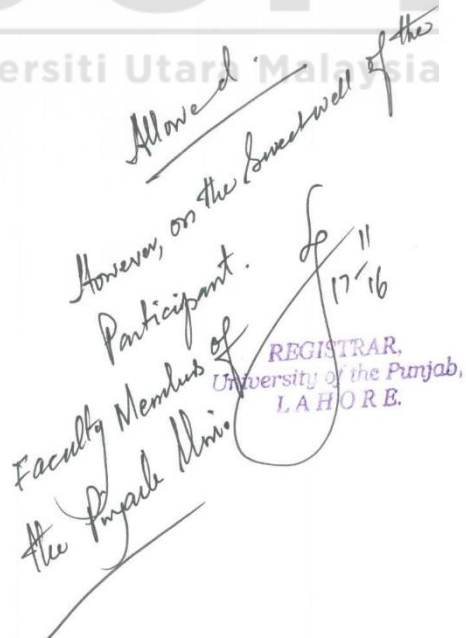 ersiti Utara Malaysia
Allowed.
However, on the Sweet will of the
Participant.
Faculty Members of
the Punjab Univ.
11
17-16
REGISTRAR,
University of the Punjab,
LAHORE.